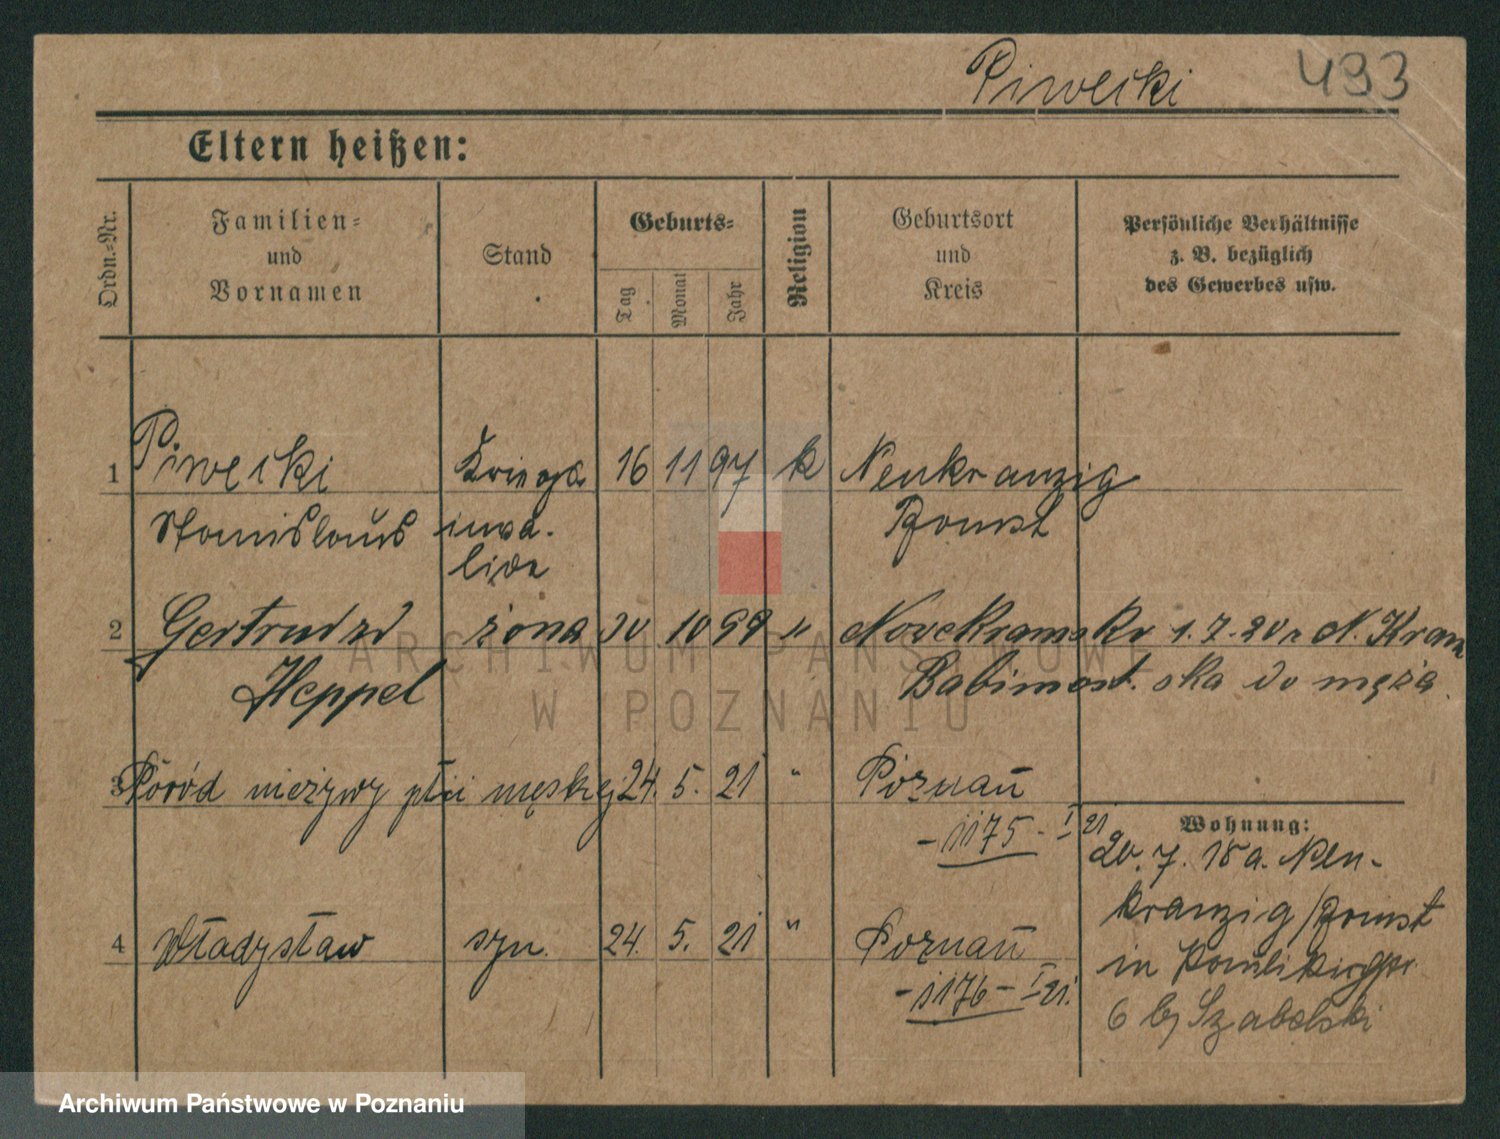 Piwecki 493
Eltern heißen:
Ordn.-Nr.
Familien- und Vornamen
Stand
Geburts-
Tag Monat Jahr
Religion
Geburtsort und Kreis
Persönliche Verhältnisse z. B. bezüglich des Gewerbes usw.
1 Piwecki Kriegs 16 11 97 k Neukranzig
Stanislaus inva- Bomst
lide
2 Gertruda żona 30 10 99 " Nowekramsko 1.7.20 a N. Kram
Heppel Babimost. ska do męża.
3 Poród nieżywy płci męskiej 24. 5. 21 " Poznań
-1175- I 21
Wohnung:
20.7.18 a. Neu-
kranzig/Bomst
4 Władysław syn. 24. 5. 21 " Poznań
in
-1176- I 21.
6 b/ Szabelski
ARCHIWUM PAŃSTWOWE
W POZNANIU
Archiwum Państwowe w Poznaniu